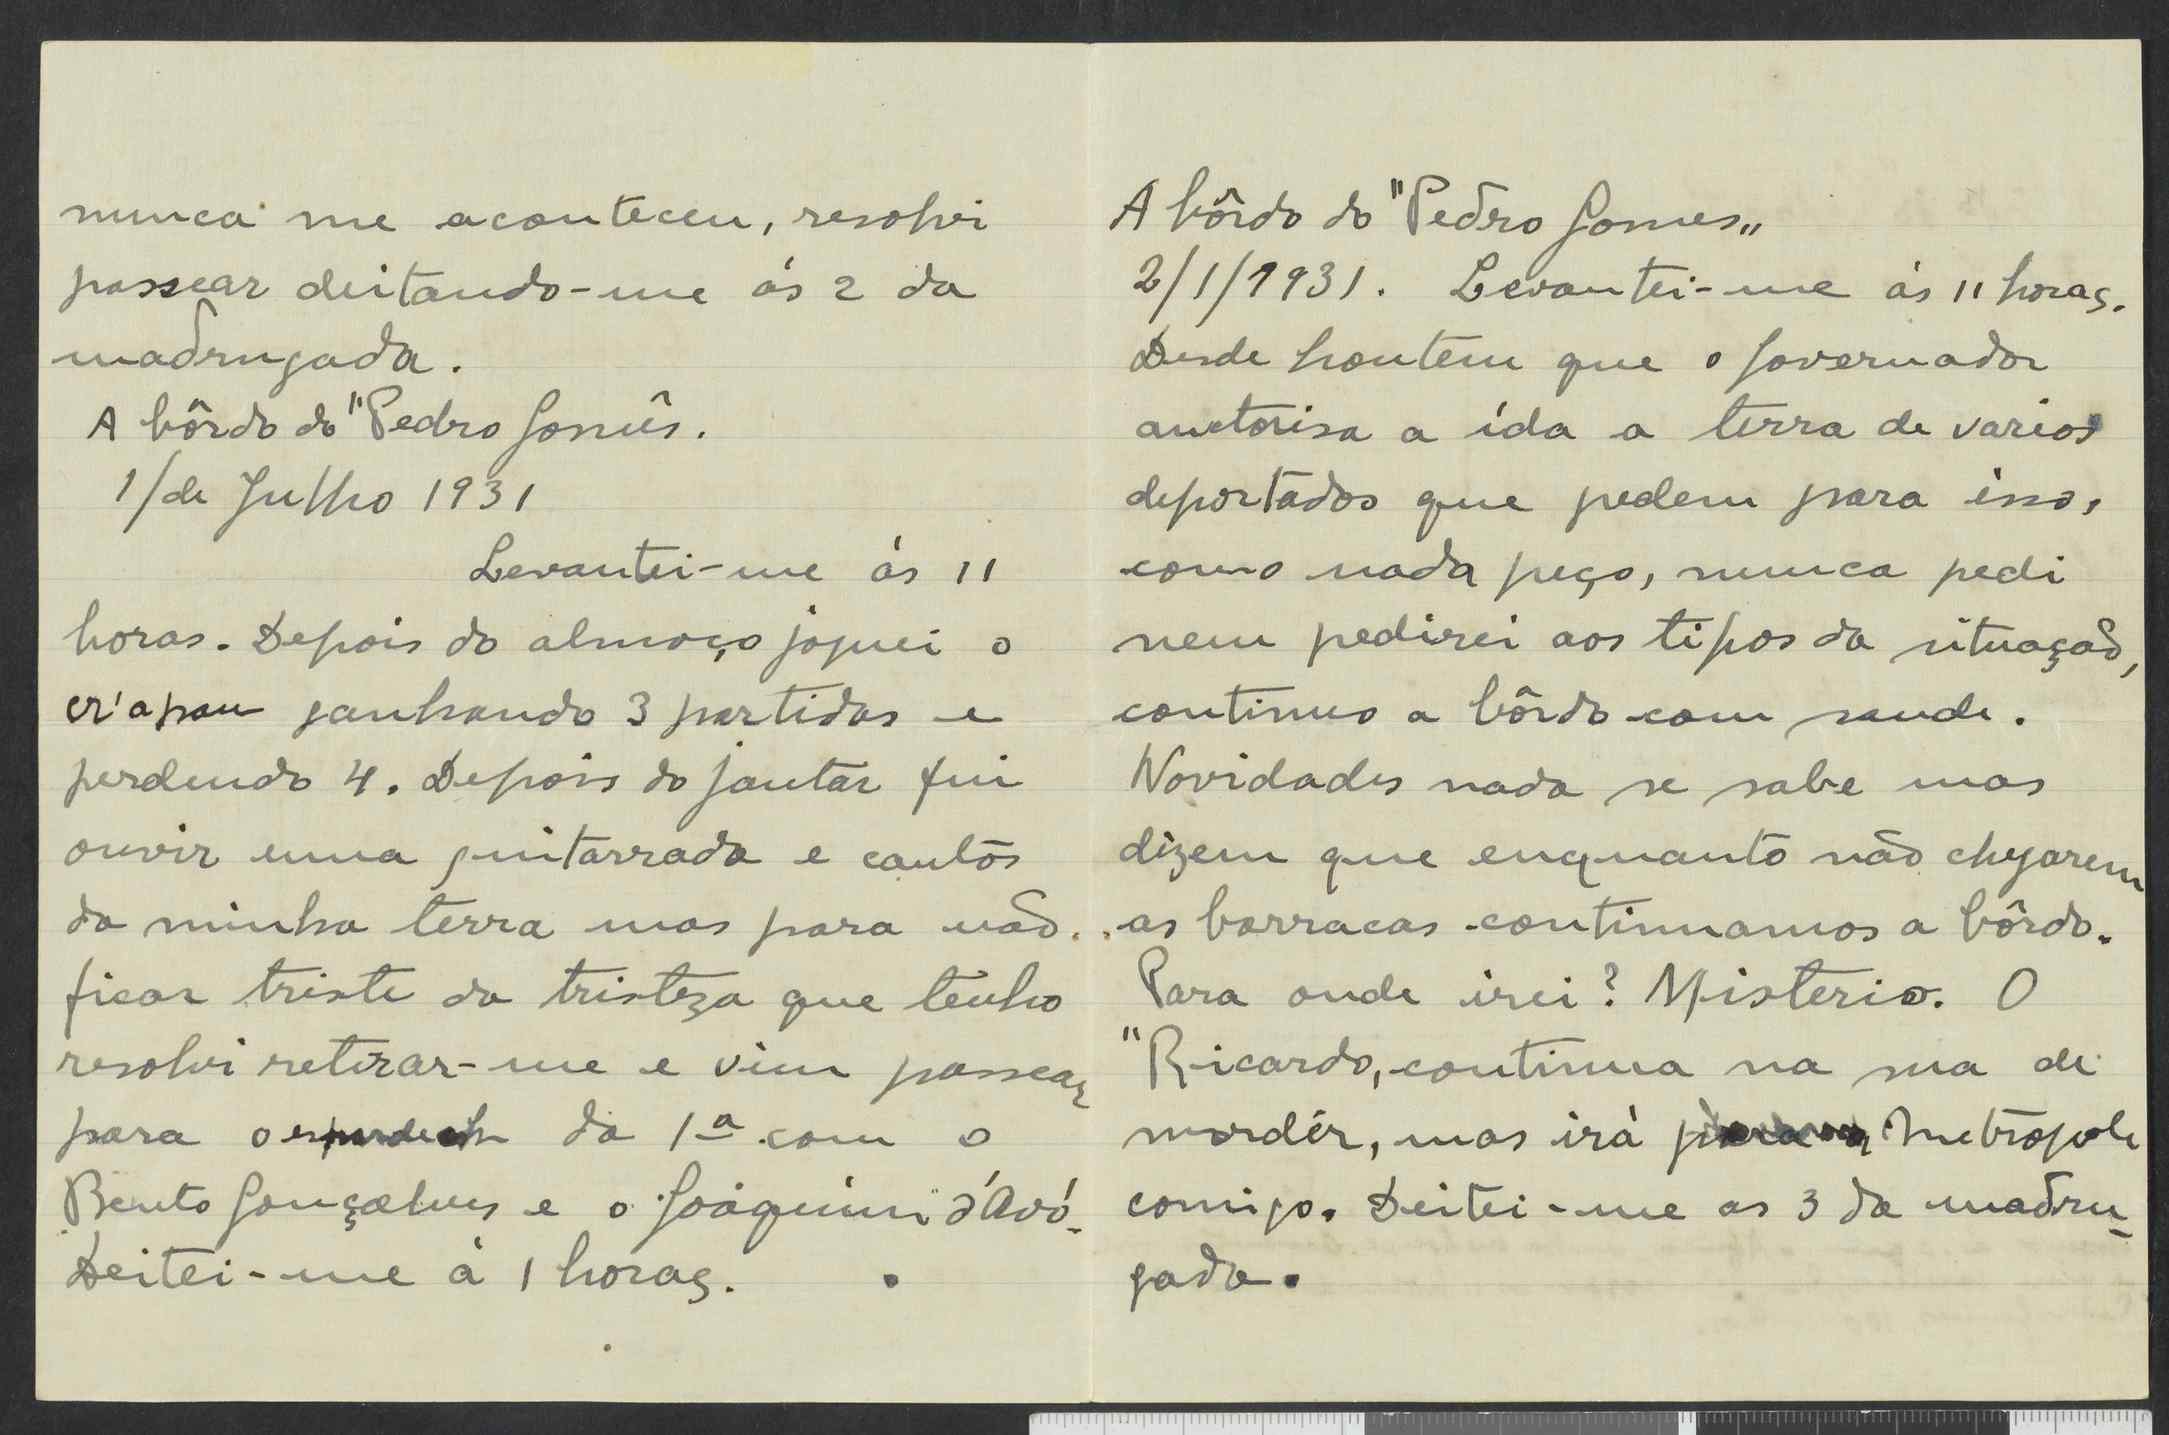 nunca me aconteceu, resolvi
passear deitando-me ás 2 da
madrugada.
A bôrdo do "Pedro Gomês.
1/de Julho 1931
Levantei-me ás 11
horas. Depois do almoço joguei o
ganhando 3 partidas e
perdendo 4. Depois do jantar fui
ouvir uma guitarrada e cantos
da minha terra mas para não
ficar triste da tristeza que tenho
resolvi retirar-me e vim passear
para o da 1ª com o
Bento Gonçalves e o Joaquim d'Avó.
Deitei-me á 1 horas.
A bôrdo do "Pedro Gomes"
2/1/1931. Levantei-me ás 11 horas.
Desde hontem que o Governador
auctorisa a ída a terra de varios
deportados que pedem para isso,
como nada peço, nunca pedi
nem pedirei aos tipos da situação,
continuo a bôrdo com saude.
Novidades nada se sabe mas
dizem que enquanto não chegarem
as barracas continuamos a bôrdo.
Para onde irei? Misterio. O
"Ricardo, continua na sua de
mordêr, mas irá para a Metropole
comigo. Deitei-me as 3 da madru-
gada.